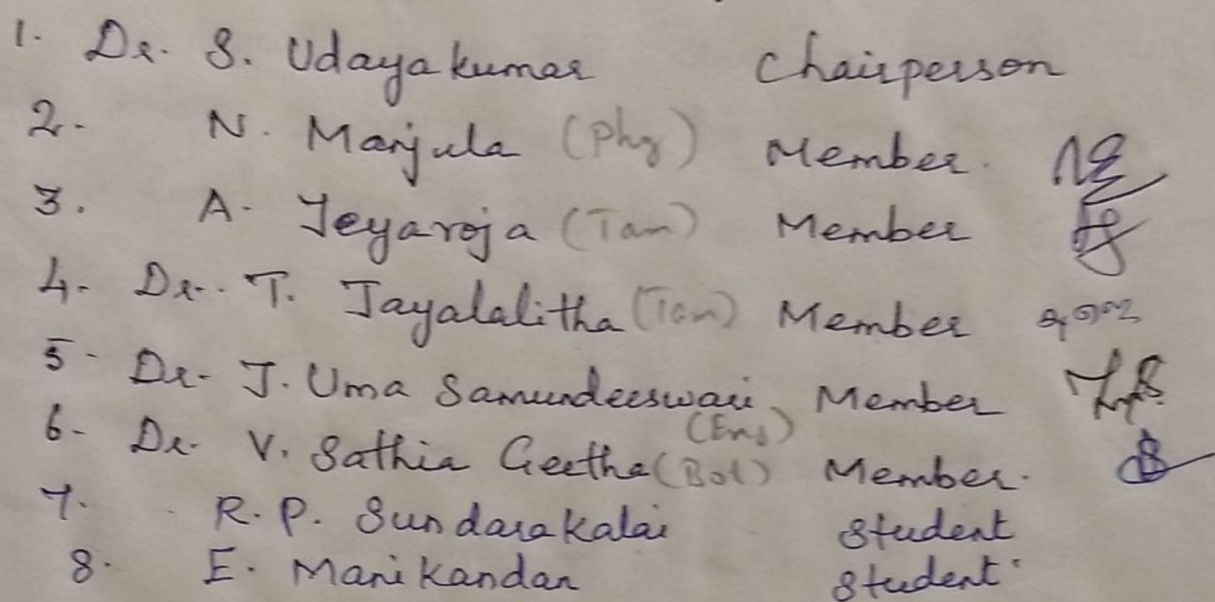 1. Dr. S. Udayakumar Chairperson
2. N. Manjula (Phy) Member.
3. A. Jeyaroja (Tam) Member
4. Dr. T. Jayalalitha (Tam) Member
5. Dr. J. Uma Samundeeswari Member
(Eng)
6. Dr. V. Sathia Geetha (Bot) Member.
7. R. P. Sundarakalai Student
8. E. Manikandan Student